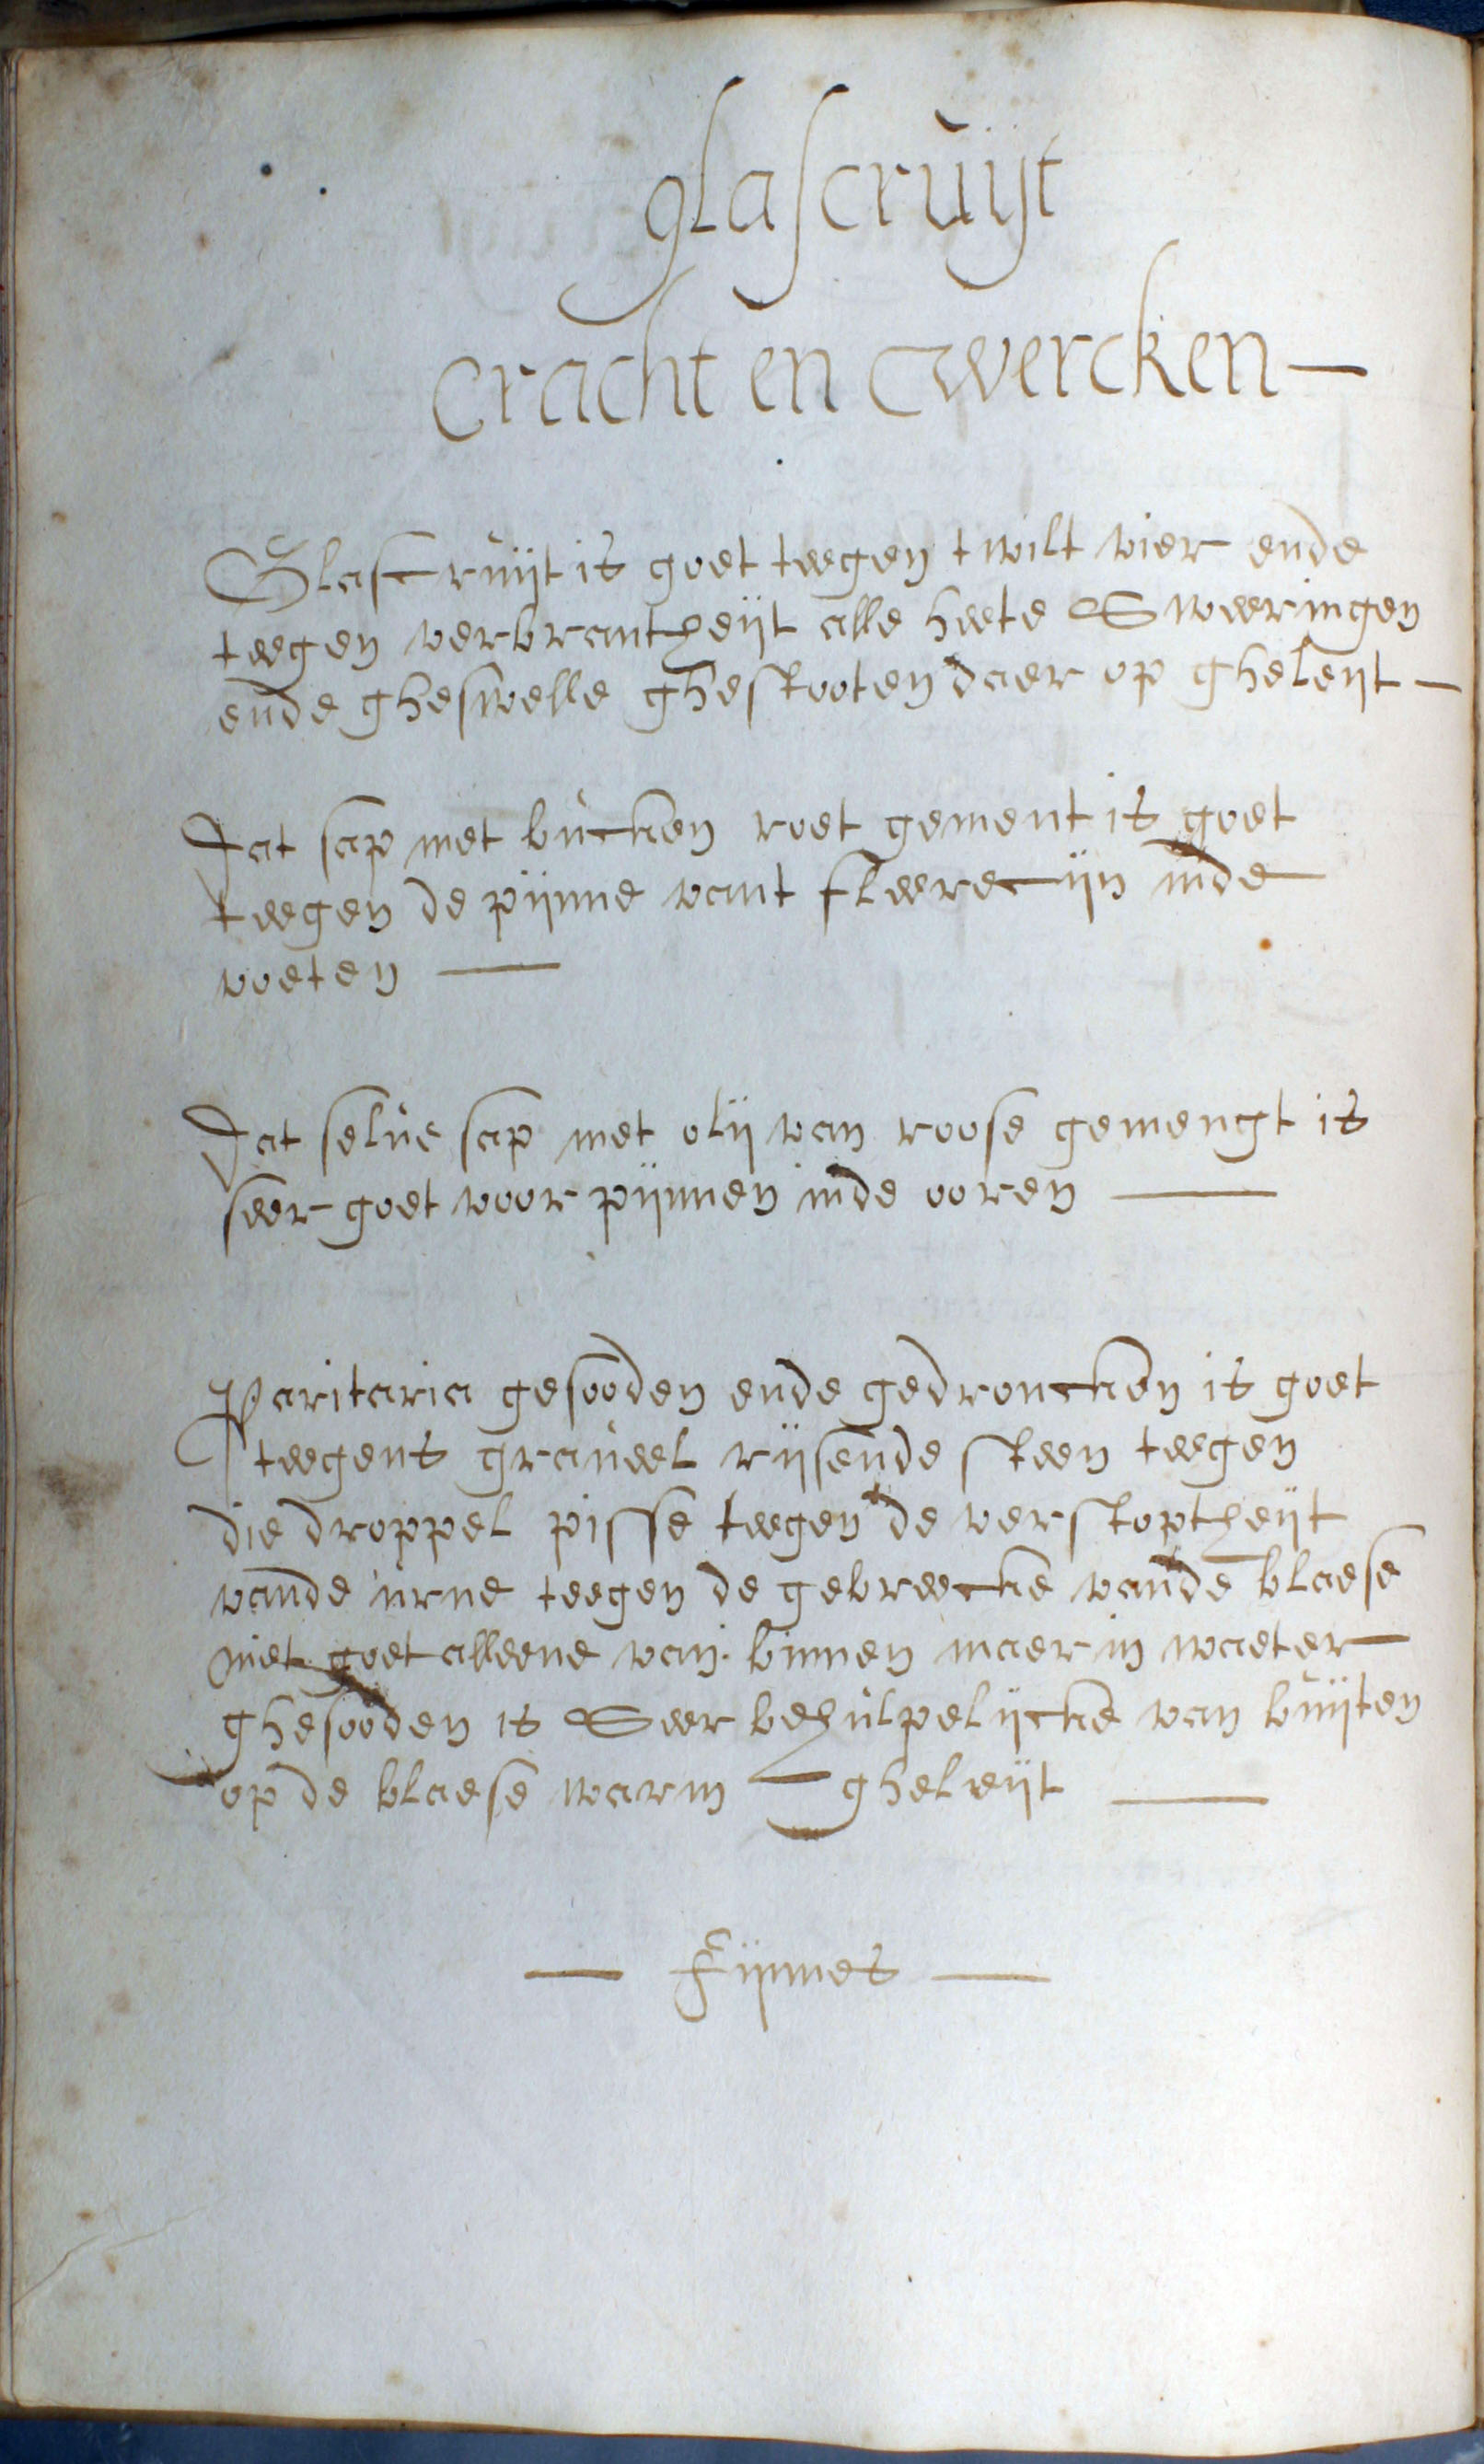 glascruijt
cracht en wercken
Glascruijt is goet teegen t wilt vier ende
teegen verbrantheijt alle heete Sweeringen
ende gheswelle ghestooten daer op gheleijt
Dat sap met bucken roet gement is goet
teegen de pijnne vant fleerecijn inde
voeten
Dat selue sap met olij van roose gemengt is
seer goet voor pijnnen inde ooren
Paritaria gesooden ende gedroncken is goet
teegens graueel rijsende steen teegen
die droppel pisse teegen de verstoptheijt
vande urne teegen de gebreecke vande blaese
niet goet alleene van binnen maer in waeter
ghesooden is Seer behulpelijcke van buijten
op de blaese warm gheleijt
Fijnnes